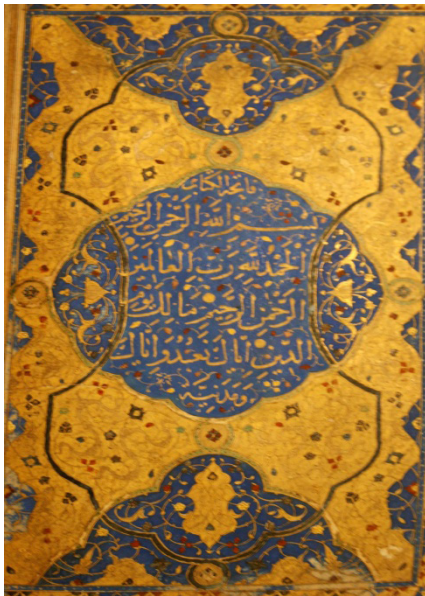 فاتحة الكتاب
بسم الله الرحمن الرحيم
الحمد لله رب العالمين
الرحمن الرحيم مالك يوم
الدين اياك نعبد واياك
ومدنية